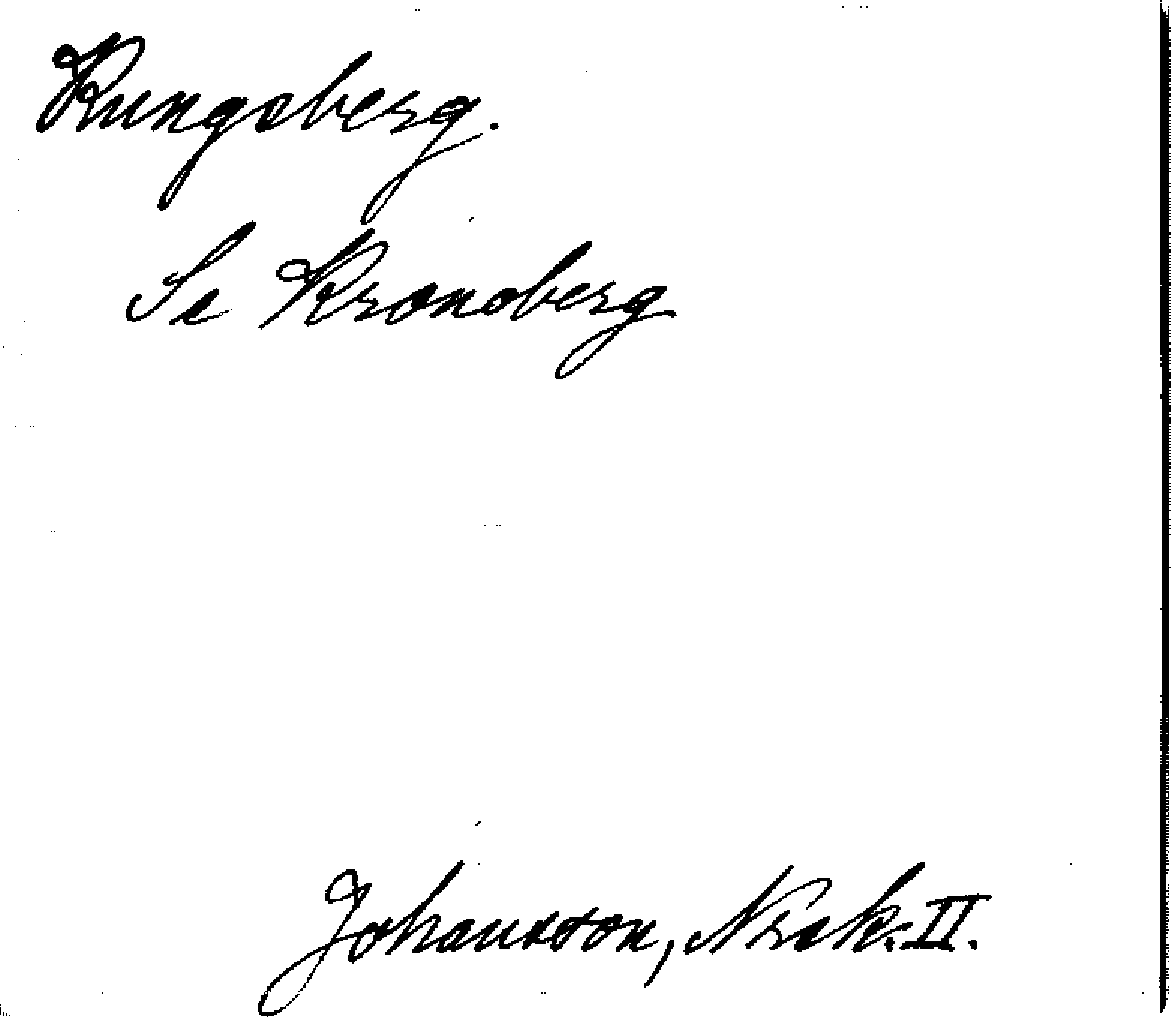 Kungsberg.
Se Kronoberg
Johansson, Nsok. II.